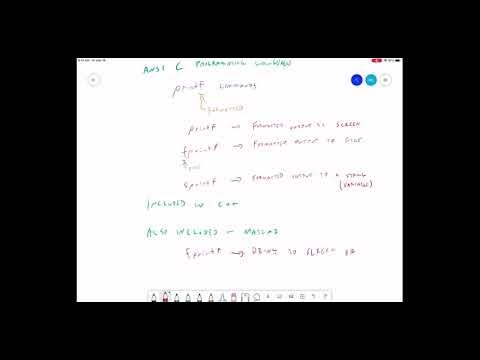 ANSI C PROGRAMMING LANGUAGE
printf COMMANDS
FORMATTED
printf → FORMATTED OUTPUT TO SCREEN
fprintf → FORMATTED OUTPUT TO FILE
sprintf → FORMATTED OUTPUT TO A STRING
(VARIABLE)
INCLUDED IN C++
ALSO INCLUDED IN MATLAB
fprintf → PRINT TO SCREEN OR